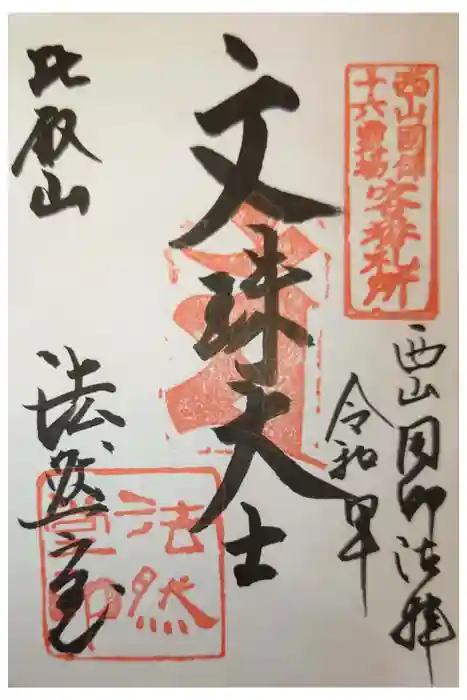 西山國師
十六霊場
客番札所
西山国師法拝
令和
文珠大士
比叡山
法然堂
法然
堂印